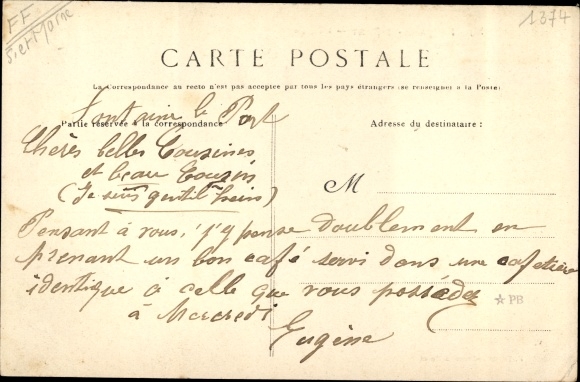 FF
S. et Marne
1374
CARTE POSTALE
La Correspondance au recto n'est pas acceptée par tous les pays étrangers (se renseigner à la Poste)
Fontaine le Port
Partie réservée à la correspondance
Adresse du destinataire:
Chères belles Cousines
et beau Cousin
(Je suis gentil hein)
M
Pensant à vous, j'y pense doublement en
prenant un bon café servi dans une cafetière
identique à celle que vous possédez
à Mercredi
☆PB
Eugène